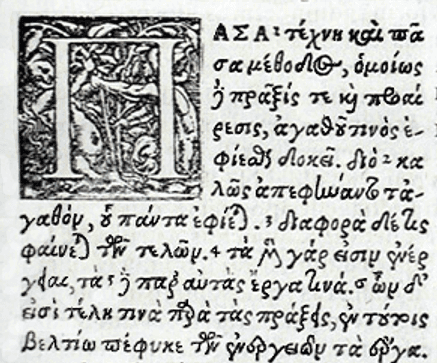 ΠΑΣΑ ¹ τέχνη καὶ πᾶ
σα μέθοδος, ὁμοίως
δὲ πρᾶξίς τε καὶ προαί
ρεσις, ἀγαθοῦ τινὸς ἐ-
φίεσθαι δοκεῖ. διὸ ² κα
λῶς ἀπεφήναντο τἀ-
γαθὸν, οὗ πάντα ἐφίεται. ³ διαφορὰ δέ τις
φαίνεται τῶν τελῶν. ⁴ τὰ μὲν γάρ εἰσιν ἐνέρ
γειαι, τὰ ⁵ δὲ παρ' αὐτὰς ἔργα τινά. ⁶ ὧν δ'
εἰσὶ τέλη τινὰ παρὰ τὰς πράξεις, ἐν τούτοις
βελτίω πέφυκε τῶν ἐνεργειῶν τὰ ἔργα.